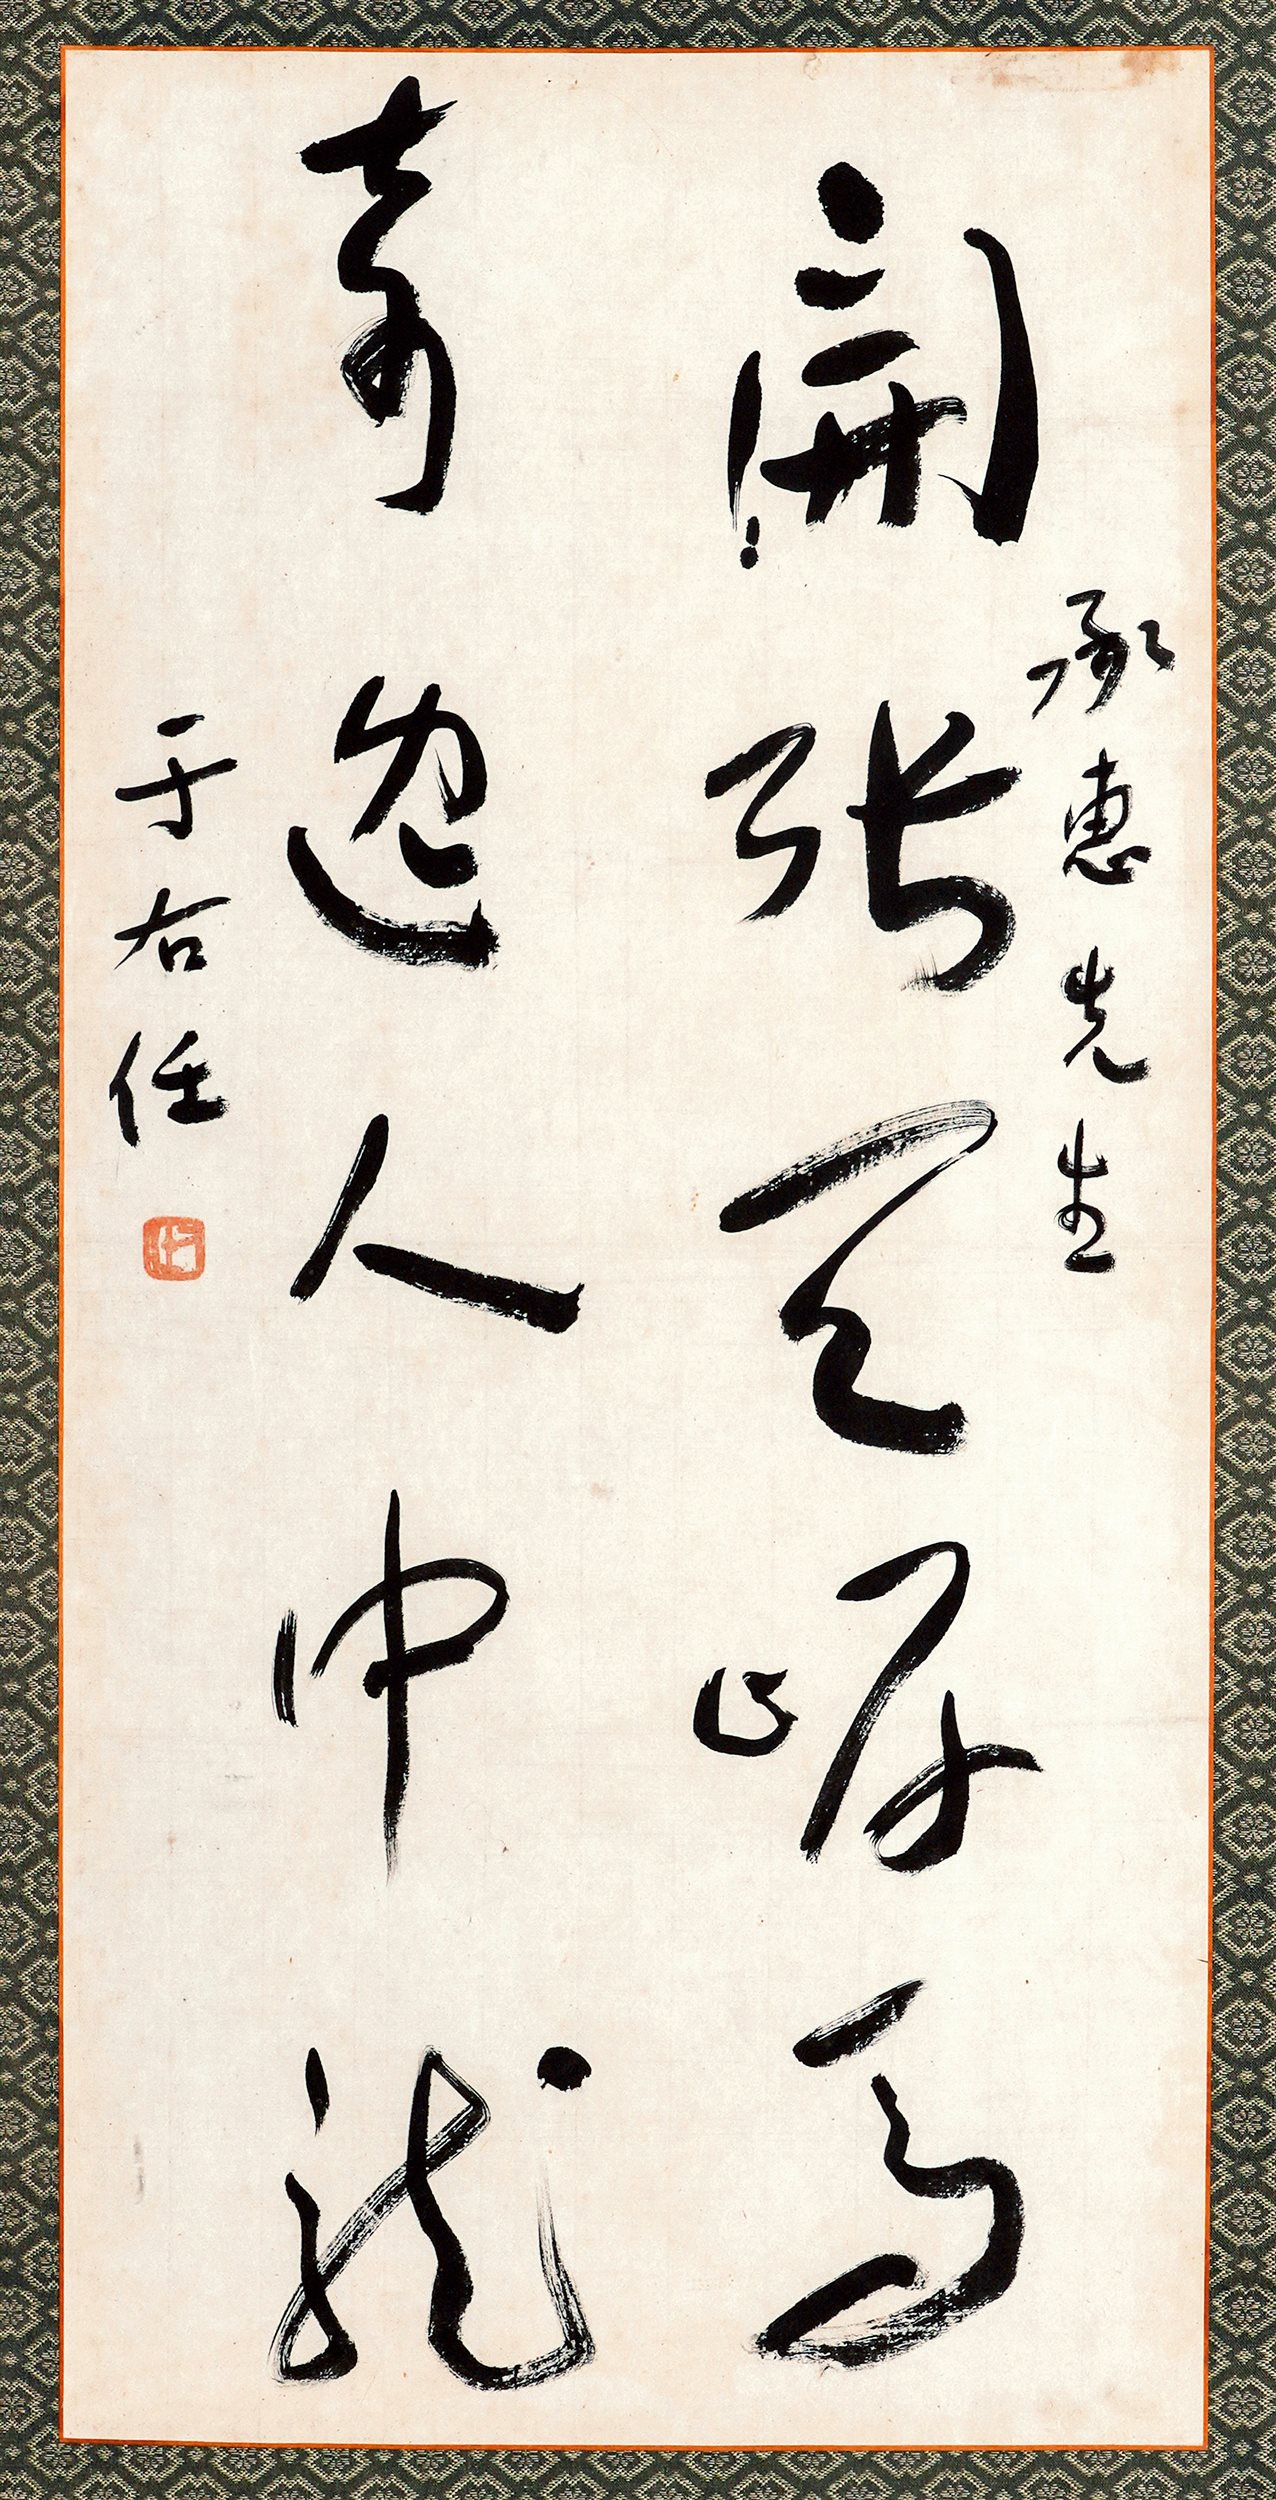 承惠先生
開張天岸馬
奇逸人中龍
于右任